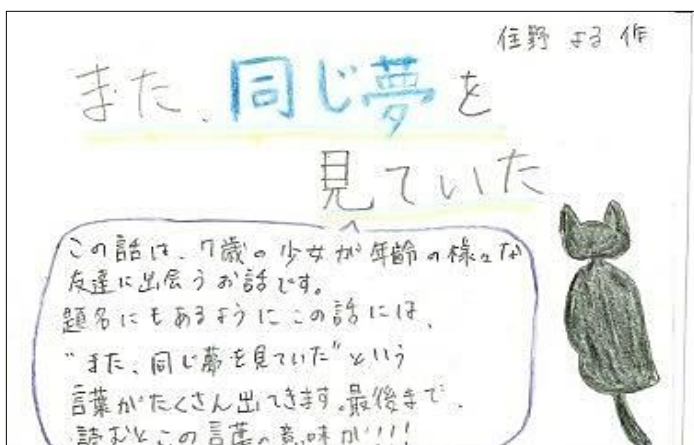 住野 よる 作
また、同じ夢を
見ていた
この話は、7歳の少女が年齢の様々な
友達に出会うお話です。
題名にもあるようにこの話には、
"また、同じ夢を見ていた"という
言葉がたくさん出てきます。最後まで、
読むとこの言葉の意味が!!!